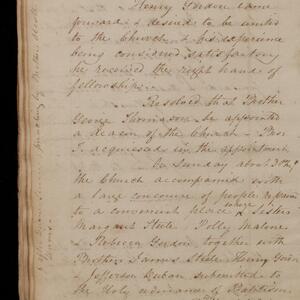 Henry Gordon came
forward & desired to be united
to the Church, & his experience
being considered satisfactory
he received the right hand of
fellowship.
Resolved that Brother
George Thomason be appointed
a deacon of the Church - Bro.
T. acquiesced in the appointment
On Sunday about 3 O'k,
the Church accompanied with
a large concourse of people repaired
to a convenient place where Sisters
Margaret Steele, Polly Malone
& Rebecca Gordon, together with
Brothers Steele, Henry Gordon
& Jefferson submitted to
the Holy ordinance of Baptism.